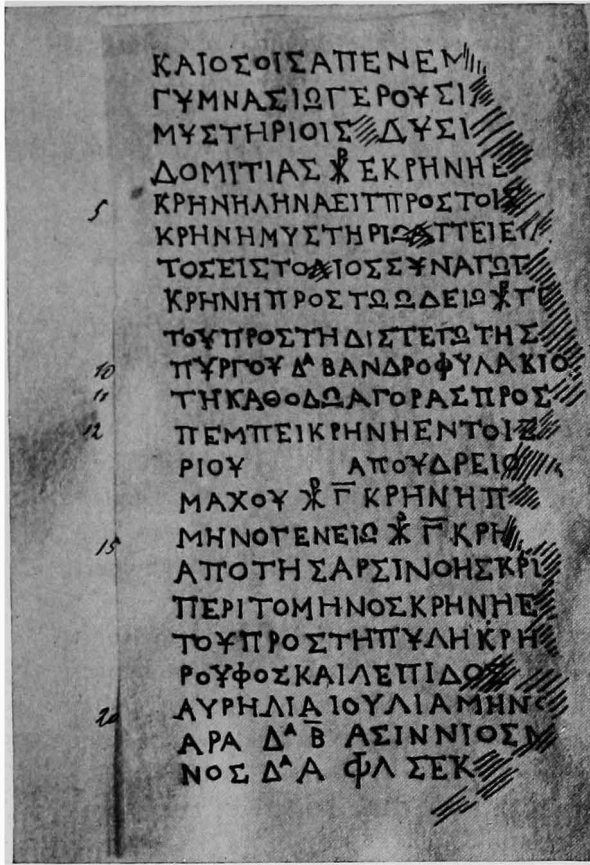 ΚΑΙΟΣΟΙΣΑΠΕΝΕΜ
ΓΥΜΝΑΣΙΩΓΕΡΟΥΣΙ
ΜΥΣΤΗΡΙΟΙΣ ΔΥΣΙ
ΔΟΜΙΤΙΑΣ ⳩ ΕΚΡΗΝΗΕ
5 ΚΡΗΝΗΛΗΝΑΕΙΤΠΡΟΣΤΟΙ
ΚΡΗΝΗΜΥΣΤΗΡΙΩ ΤΤΕΙΕ
ΤΟΣΕΙΣΤΟΔΙΟΣΣΥΝΑΓΩΓ
ΚΡΗΝΗΠΡΟΣΤΩΩΔΕΙΩ⳩ΤΕ
ΤΟΥΠΡΟΣΤΗΔΙΣΤΕΓΩΤΗΣ
10 ΠΥΡΓΟΥ Δᴬ ΒΑΝΔΡΟΦΥΛΑΚΙΟ
11 ΤΗΚΑΘΟΔΩΑΓΟΡΑΣΠΡΟΣ
12 ΠΕΜΠΕΙΚΡΗΝΗΕΝΤΟΙΣ
ΡΙΟΥ ΑΠΟΥΔΡΕΙΟ
ΜΑΧΟΥ ⳩ Γ̅ ΚΡΗΝΗΠ
15 ΜΗΝΟΓΕΝΕΙΩ ⳩ Γ̅ ΚΡΗ
ΑΠΟΤΗΣΑΡΣΙΝΟΗΣΚΡΙ
ΠΕΡΙΤΟΜΗΝΟΣΚΡΗΝΗΕ
ΤΟΥΠΡΟΣΤΗΠΥΛΗΚΡΗ
ΡΟΥΦΟΣΚΑΙΛΕΠΙΔΟΣ
20 ΑΥΡΗΛΙΑ ΙΟΥΛΙΑΜΗΝΟ
ΑΡΑ Δᴬ Β̅ ΑΣΙΝΝΙΟΣΝ
ΝΟΣ Δᴬ Α ΦΛ ΣΕΚ